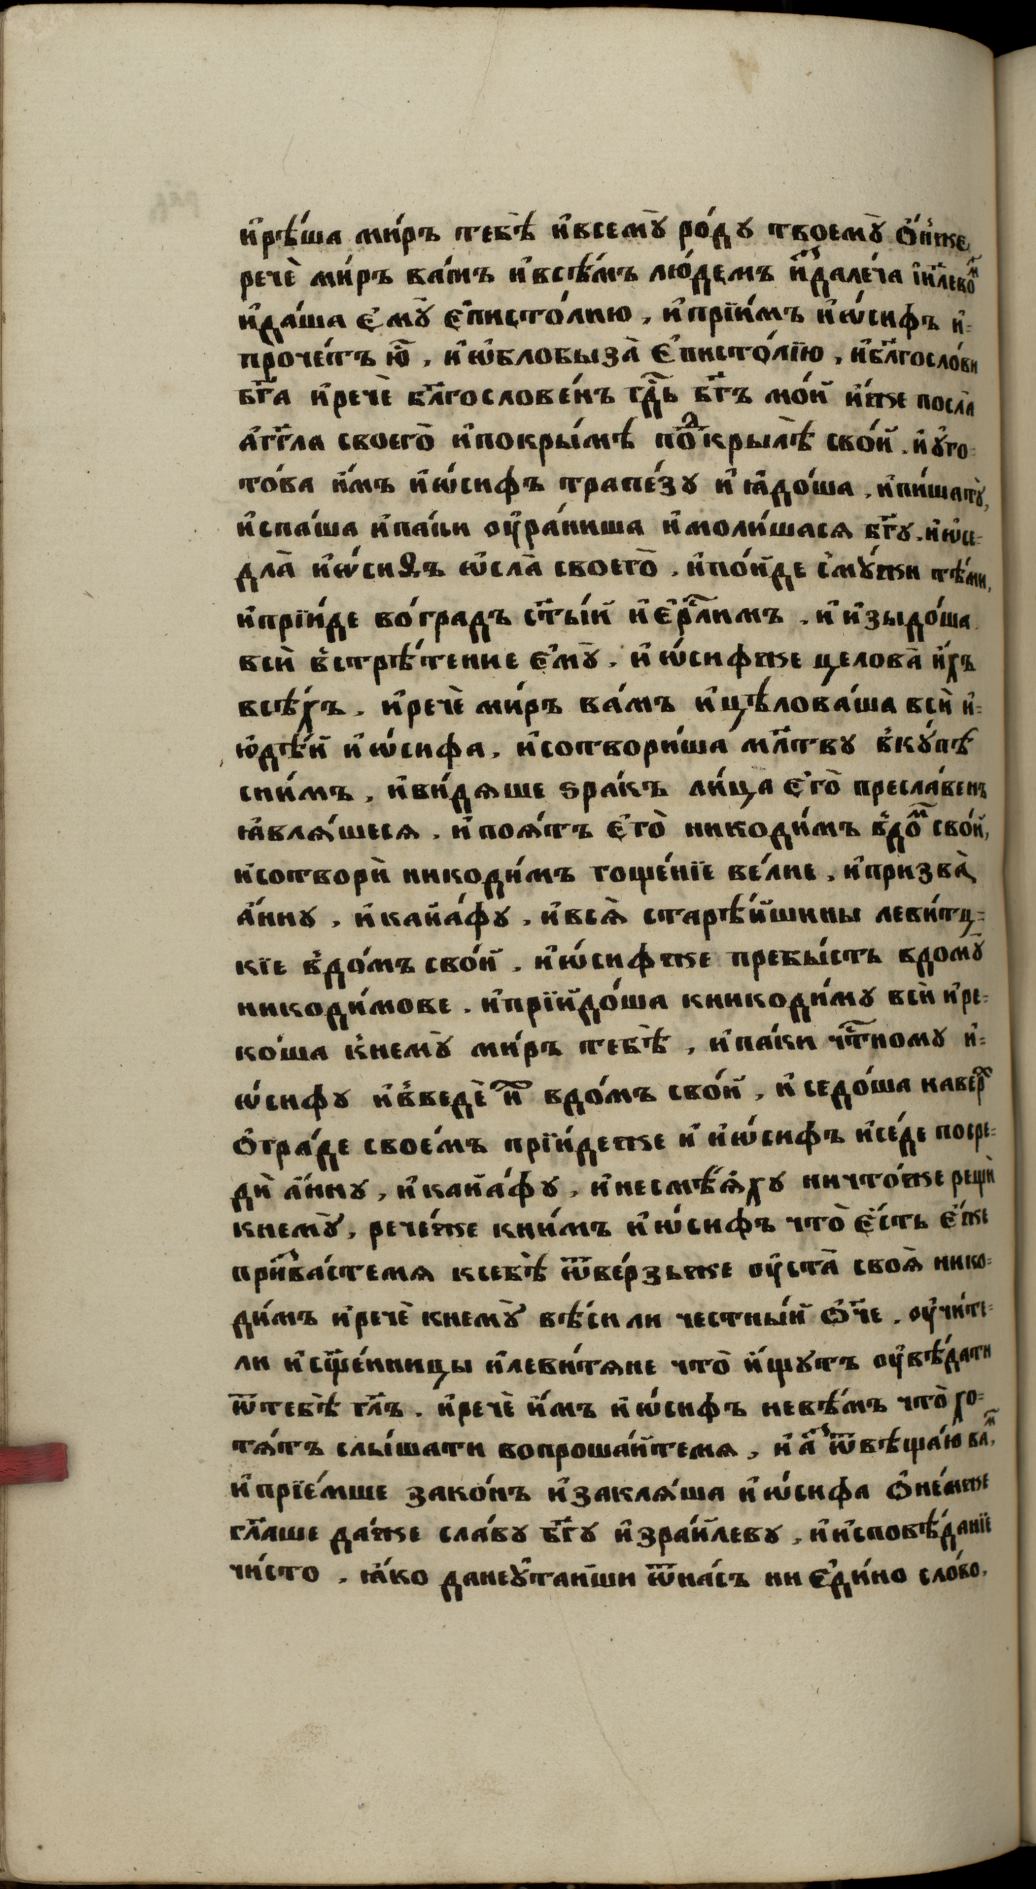 и҆рѣ́ша ми́ръ тебѣ̀ и҆всемꙋ̀ ро́дꙋ твоемꙋ̀ ѻ҆́нже
речѐ ми́ръ ва́мъ и҆всѣ́мъ лю́демъ и҆здале́ча і҆и҃левом
и҆да́ша є҆мꙋ̀ є҆писто́лию, и҆прїи́мъ и҆ѡ́сифъ и҆-
проче́тъ ю҆̀, и҆ѡ҆блобыза̀ є҆писто́лїю, и҆бл҃гослови
бг҃а и҆речѐ бл҃гослове́нъ гдⷭ҇ь бг҃ъ мо́й и҆́же посла̀
а҆́гг҃ла своего̀ и҆покры́мѣ под̾крылѣ̀ свои́. и҆ꙋ҆го-
то́ва и҆́мъ и҆ѡ́сифъ трапе́зꙋ и҆ ꙗ҆до́ша, и҆пи́шатꙋ̀,
и҆спа́ша и҆па́ки ѹ҆ра́ниша и҆моли́шася бг҃ꙋ. и҆ѡ҆се-
дла̀ и҆ѡ́сиѳъ ѡ҆сла̀ своего̀, и҆по́йде с̾мꙋ́жи тѣ́ми,
и҆прїи́де во́градъ ст҃ы́й и҆є҆рⷭ҇лимъ, и҆ и҆зыдо́ша
всѝ в̾стрѣ́тение є҆мꙋ̀. и҆ѡ́сифже целова̀ и҆́хъ
всѣ́хъ. и҆речѐ ми́ръ ва́мъ и҆цѣлова́ша всѝ и҆-
ю҆дѣ́й и҆ѡ́сифа, и҆сотвори́ша мл҃твꙋ в̾кꙋ́пѣ
сни́мъ, и҆ви́дяше ѕра́къ лица̀ є҆го̀ пресла́венъ
ꙗ҆вля́шеся. и҆поя́тъ є҆го̀ никоди́мъ в̾дом сво́й,
и҆сотворѝ никоди́мъ гоще́нїе ве́лие, и҆призва̀
а҆́ннꙋ, и҆каиа́фꙋ, и҆вся̀ старѣ́йшины леви́тц-
кїе в̾до́мъ сво́й. и҆ѡ́сифже пребы́сть вдомꙋ̀
никоди́мове. и҆прїйдо́ша кникоди́мꙋ всѝ и҆ре-
ко́ша к̾немꙋ̀ ми́ръ тебѣ̀, и҆па́ки чтⷭ҇номꙋ и҆-
ѡ́сифꙋ и҆в̾ведѐ и҆х вдо́мъ сво́й, и҆ седо́ша наверх
ѻ҆гра́де свое́мъ прїи́деже и҆ и҆ѡ́сифъ и҆се́де посре-
дѝ а҆́ннꙋ, и҆каиа́фꙋ, и҆несмѣ́яхꙋ ничто́же рещѝ
кнемꙋ̀, рече́же кни́мъ и҆ѡ́сифъ что̀ є҆́сть є҆́же
призва́стемя ксебѣ̀ ѿве́рзьже ѹ҆ста̀ своя̀ нико-
ди́мъ и҆речѐ кнемꙋ̀ вѣ́си ли честны́й ѻ҆́ч҃е. ѹ҆чи́те-
ли и҆сщ҃е́нницы и҆леви́тяне что̀ и҆́щꙋтъ ѹ҆вѣ́дати
ѿтебѣ̀ гл҃ъ. и҆речѐ и҆́мъ и҆ѡ́сифъ невѣ́мъ что̀ хо-
тя́тъ слы́шати вопроша́йтемя, и҆ а҆з ѿвѣща́ю вам,
и҆прїе́мше зако́нъ и҆закля́ша и҆ѡ́сифа ѻ҆не́мже
гл҃аше да́же сла́вꙋ бг҃ꙋ и҆зраи́левꙋ, и҆и҆сповѣ́данїе
чи́сто. ꙗ҆́ко данеꙋ҆таи́ши ѿна́съ ни є҆ди́но сло́во.